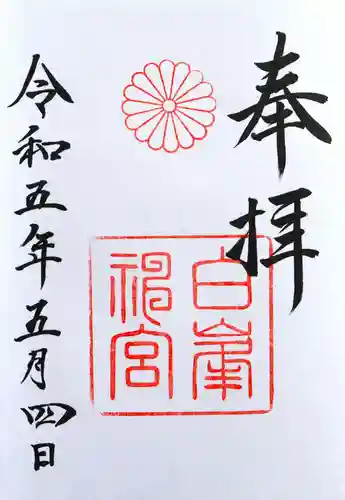 奉拝
白峯神宮
令和五年五月四日